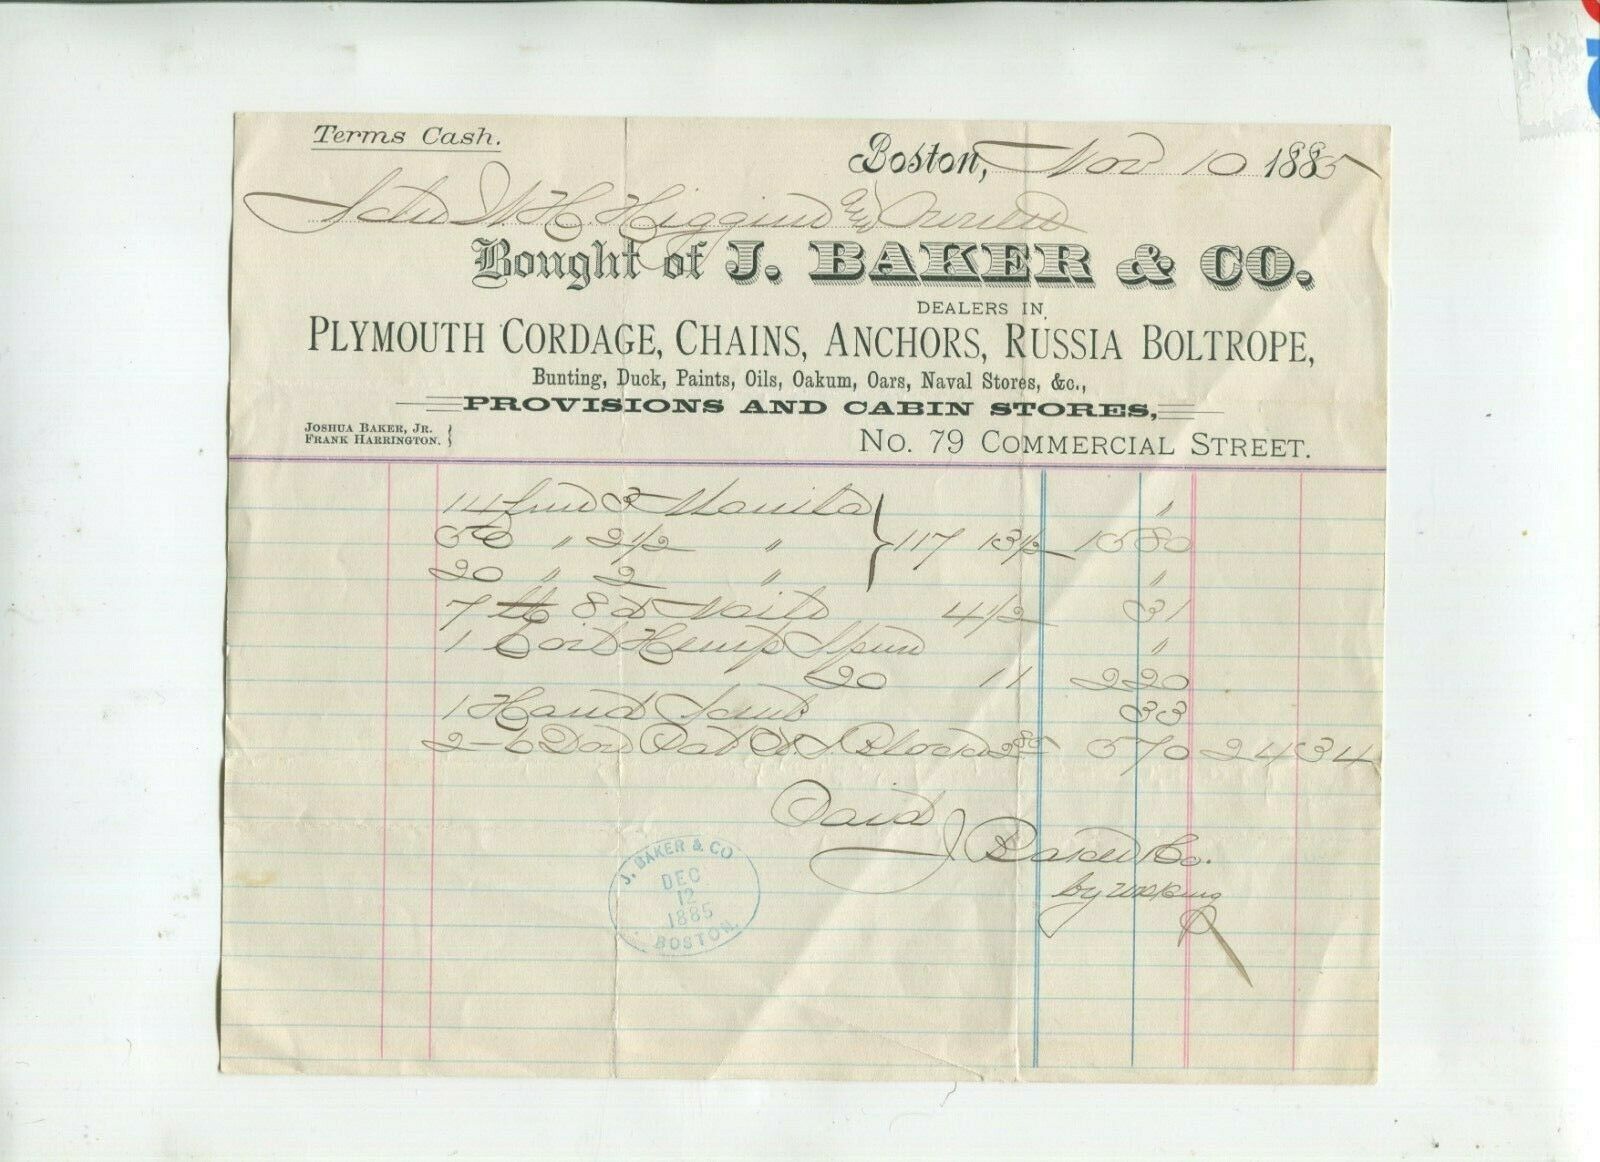 Terms Cash.
Boston, Nov 10 1885
Schr W. H. Higgins & Owners
Bought of J. BAKER & CO.
DEALERS IN
PLYMOUTH CORDAGE, CHAINS, ANCHORS, RUSSIA BOLTROPE,
Bunting, Duck, Paints, Oils, Oakum, Oars, Naval Stores, &c.,
PROVISIONS AND CABIN STORES,
JOSHUA BAKER, JR.
FRANK HARRINGTON.
No. 79 COMMERCIAL STREET.
14 fms 3 Manila "
50 " 2 1/2 " } 117 13 1/2 15 80
20 " 2 " "
7 lb 8d Nails 4 1/2 31
1 Coil Hemp Spun "
20 11 2 20
1 Hand Scrub 33
2-6 Pat Blocks 2 85 5 70 24 34
Paid
J Baker & Co.
by
J. BAKER & CO
DEC
12
1885
BOSTON